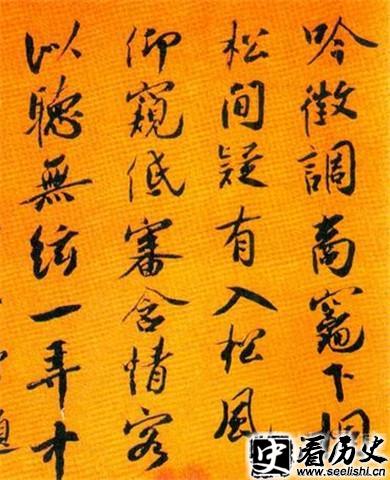 吟徵調商竈下桐
松間疑有入松風
仰窺低審含情客
以聽無絃一弄中
史 看历史
www.seelishi.cn